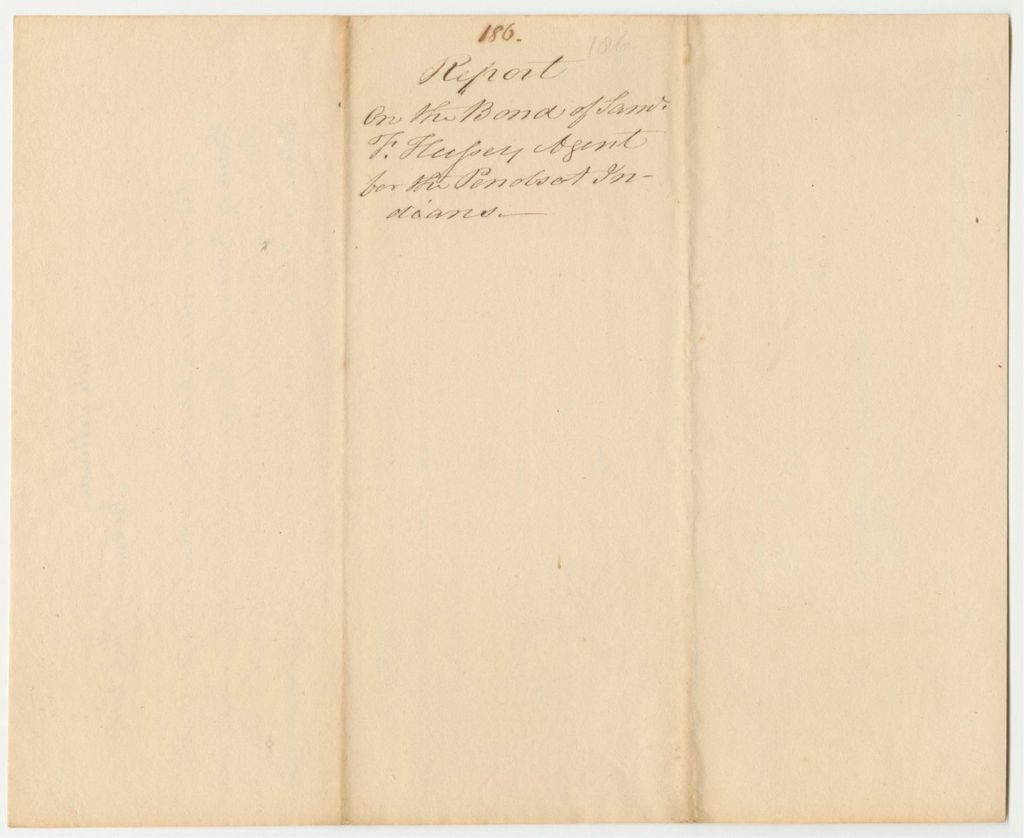 186.
186
Report
On the Bond of Saml.
F. Hussey Agent
for the Penobscot In-
dians.